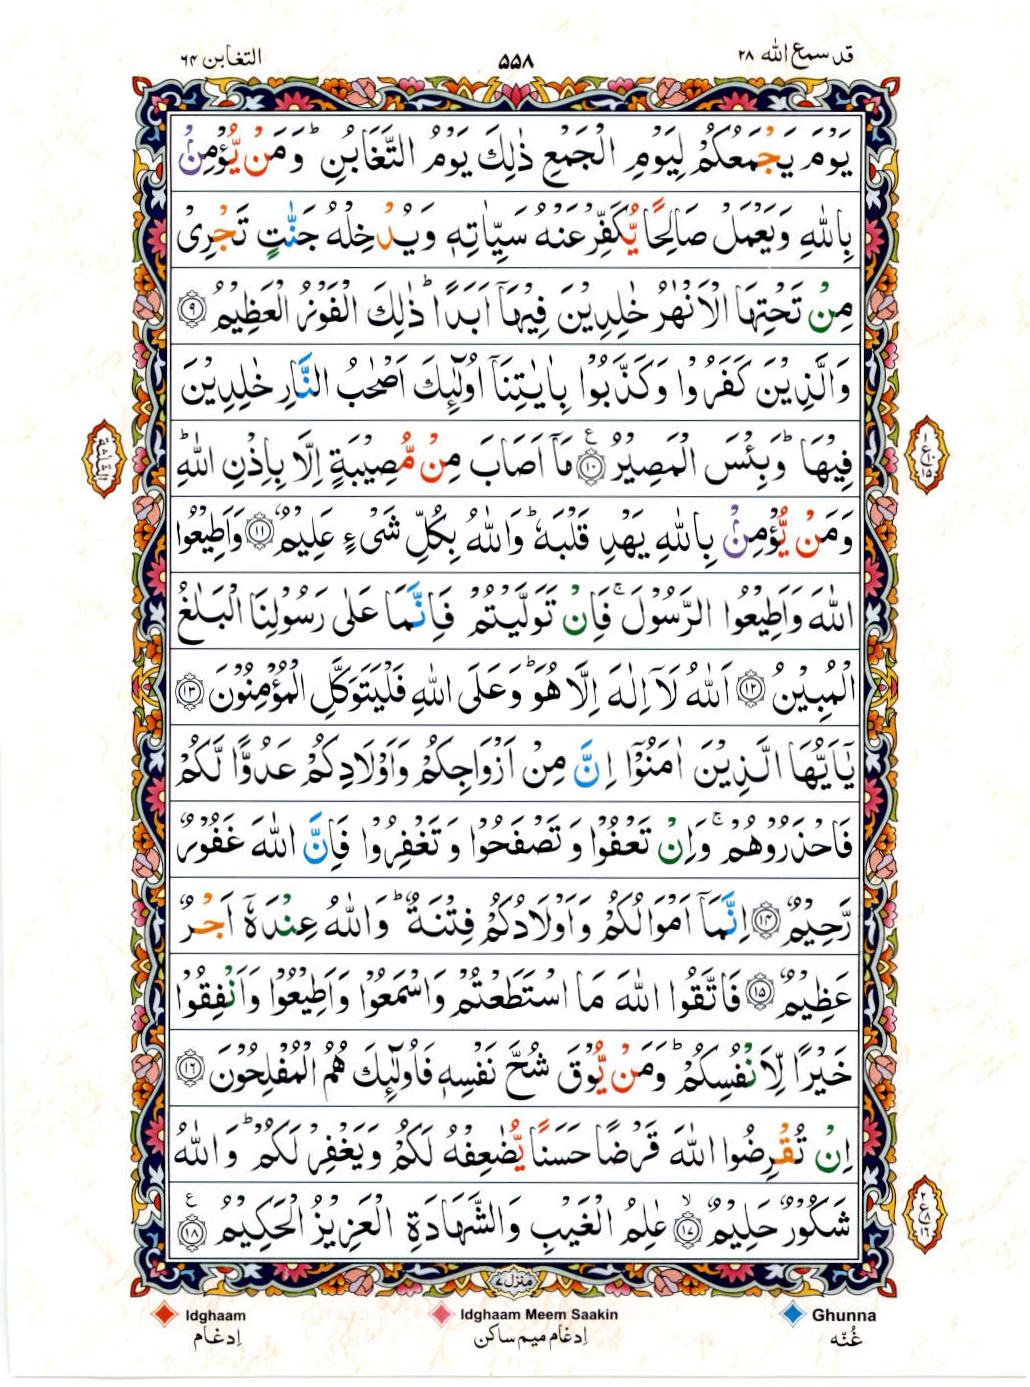 قد سمع الله ٢٨
٥٥٨
التغابن ٦٤
يَوْمَ يَجْمَعُكُمْ لِيَوْمِ الْجَمْعِ ذٰلِكَ يَوْمُ التَّغَابُنِ ؕ وَمَنْ يُّؤْمِنْۢ
بِاللّٰهِ وَيَعْمَلْ صَالِحًا يُّكَفِّرْ عَنْهُ سَيِّاٰتِهٖ وَيُدْخِلْهُ جَنّٰتٍ تَجْرِىْ
مِنْ تَحْتِهَا الْاَنْهٰرُ خٰلِدِيْنَ فِيْهَاۤ اَبَدًا ؕ ذٰلِكَ الْفَوْزُ الْعَظِيْمُ ﴿۹﴾
وَالَّذِيْنَ كَفَرُوْا وَكَذَّبُوْا بِاٰيٰتِنَاۤ اُولٰٓئِكَ اَصْحٰبُ النَّارِ خٰلِدِيْنَ
فِيْهَا ؕ وَبِئْسَ الْمَصِيْرُ ﴿۱۰﴾ ع مَاۤ اَصَابَ مِنْ مُّصِيْبَةٍ اِلَّا بِاِذْنِ اللّٰهِ ؕ
وَمَنْ يُّؤْمِنْۢ بِاللّٰهِ يَهْدِ قَلْبَهٗ ؕ وَاللّٰهُ بِكُلِّ شَىْءٍ عَلِيْمٌ ﴿۱۱﴾ وَاَطِيْعُوا
اللّٰهَ وَاَطِيْعُوا الرَّسُوْلَ ۚ فَاِنْ تَوَلَّيْتُمْ فَاِنَّمَا عَلٰى رَسُوْلِنَا الْبَلٰغُ
الْمُبِيْنُ ﴿۱۲﴾ اَللّٰهُ لَاۤ اِلٰهَ اِلَّا هُوَ ؕ وَعَلَى اللّٰهِ فَلْيَتَوَكَّلِ الْمُؤْمِنُوْنَ ﴿۱۳﴾
يٰۤاَيُّهَا الَّذِيْنَ اٰمَنُوْۤا اِنَّ مِنْ اَزْوَاجِكُمْ وَاَوْلَادِكُمْ عَدُوًّا لَّكُمْ
فَاحْذَرُوْهُمْ ۚ وَاِنْ تَعْفُوْا وَتَصْفَحُوْا وَتَغْفِرُوْا فَاِنَّ اللّٰهَ غَفُوْرٌ
رَّحِيْمٌ ﴿۱۴﴾ اِنَّمَاۤ اَمْوَالُكُمْ وَاَوْلَادُكُمْ فِتْنَةٌ ؕ وَاللّٰهُ عِنْدَهٗۤ اَجْرٌ
عَظِيْمٌ ﴿۱۵﴾ فَاتَّقُوا اللّٰهَ مَا اسْتَطَعْتُمْ وَاسْمَعُوْا وَاَطِيْعُوْا وَاَنْفِقُوْا
خَيْرًا لِّاَنْفُسِكُمْ ؕ وَمَنْ يُّوْقَ شُحَّ نَفْسِهٖ فَاُولٰٓئِكَ هُمُ الْمُفْلِحُوْنَ ﴿۱۶﴾
اِنْ تُقْرِضُوا اللّٰهَ قَرْضًا حَسَنًا يُّضٰعِفْهُ لَكُمْ وَيَغْفِرْ لَكُمْ ؕ وَاللّٰهُ
شَكُوْرٌ حَلِيْمٌ ۙ﴿۱۷﴾ عٰلِمُ الْغَيْبِ وَالشَّهَادَةِ الْعَزِيْزُ الْحَكِيْمُ ﴿۱۸﴾ ع
منزل ٧
Idghaam
Idghaam Meem Saakin
Ghunna
إدغام
إدغام ميم ساكن
غُنّه